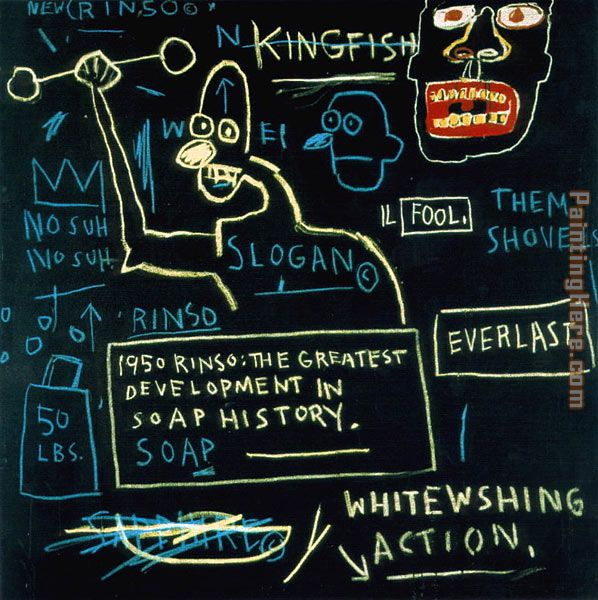 NEW (RINSO©
N KINGFISH
W EI
NO SUH
NO SUH
IL FOOL.
THEM
SHOVELS
SLOGAN ©
RINSO
EVERLAST
1950 RINSO: THE GREATEST
DEVELOPMENT IN
SOAP HISTORY.
SOAP
50
LBS.
WHITEWSHING
ACTION.
PaintingHere.com